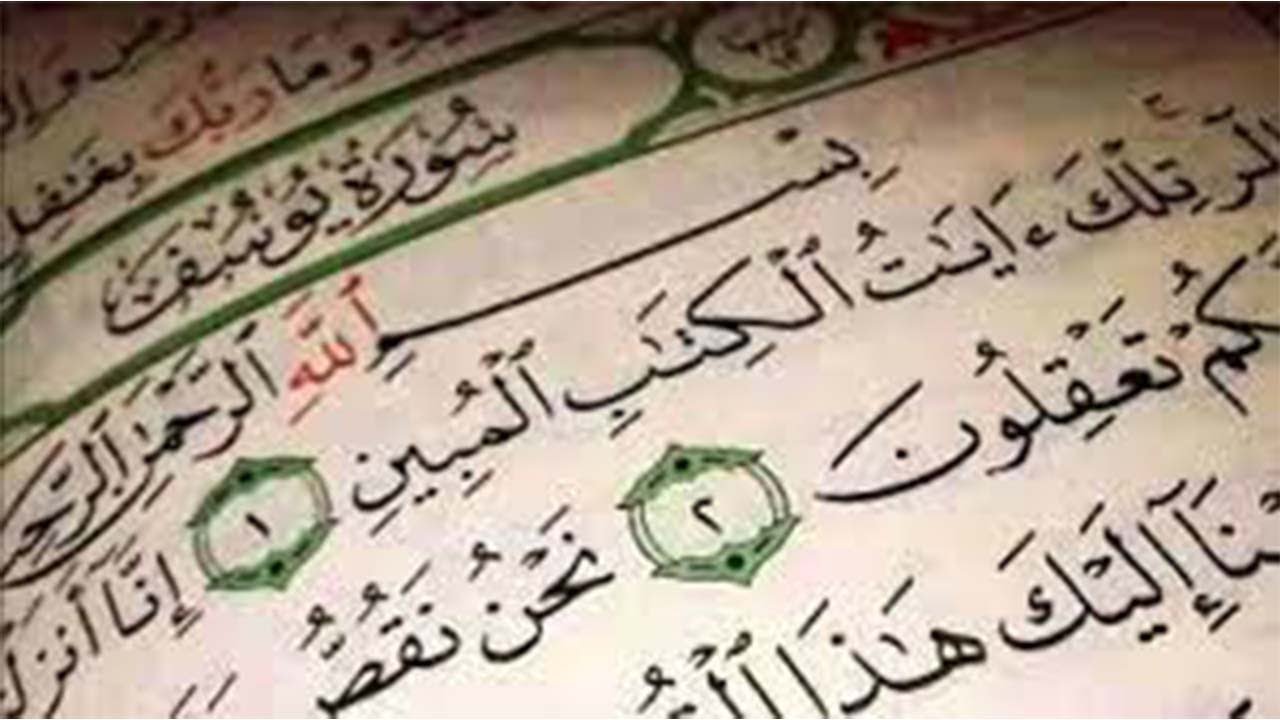 وَمَا رَبُّكَ بِغَٰفِلٍ
سُورَةُ يُوسُفَ
بِسْمِ ٱللَّهِ ٱلرَّحْمَٰنِ ٱلرَّحِيمِ
الٓر تِلْكَ ءَايَٰتُ ٱلْكِتَٰبِ ٱلْمُبِينِ ١ إِنَّآ أَنزَ
كُمْ تَعْقِلُونَ ٢ نَحْنُ نَقُصُّ
نَآ إِلَيْكَ هَٰذَا ٱلْقُ